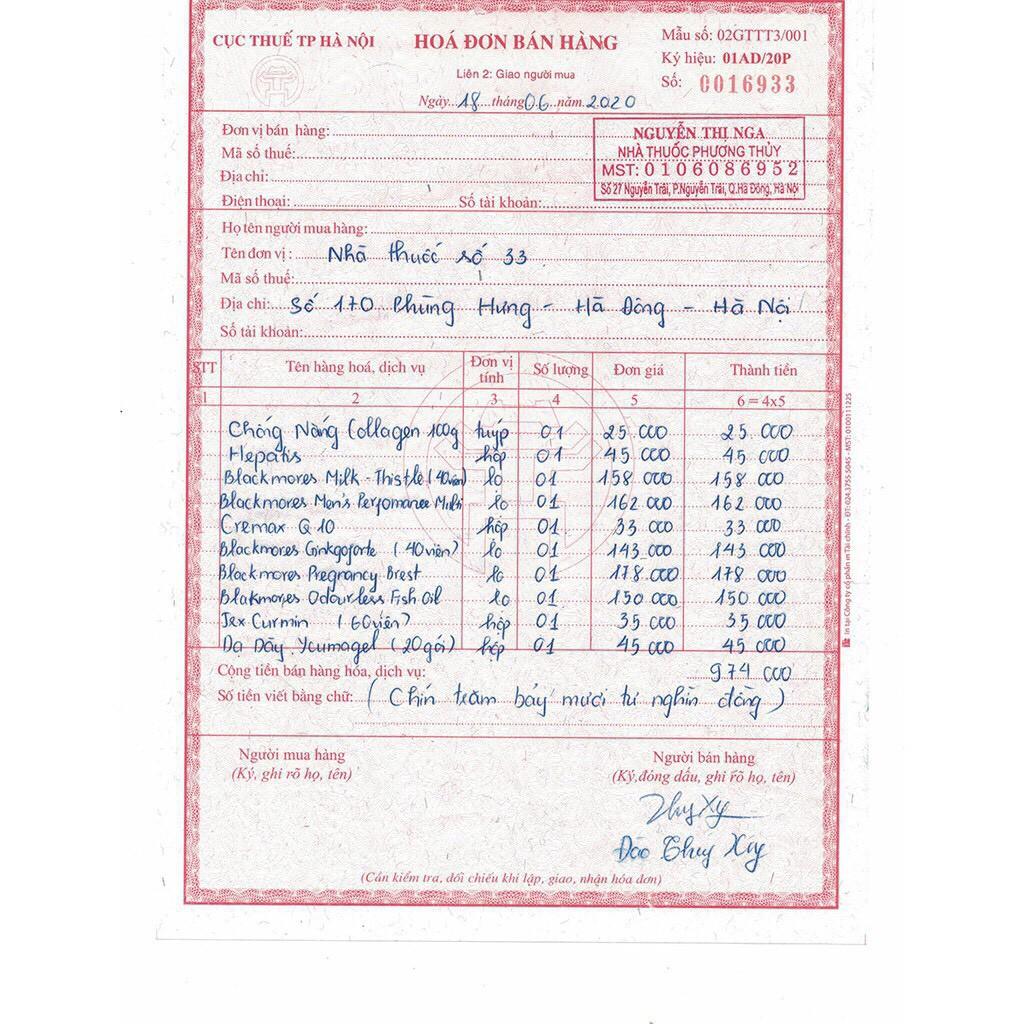 CỤC THUẾ TP HÀ NỘI
HOÁ ĐƠN BÁN HÀNG
Liên 2: Giao người mua
Ngày 18 tháng 06 năm 2020
Mẫu số: 02GTTT3/001
Ký hiệu: 01AD/20P
Số: 0016933
Đơn vị bán hàng:
Mã số thuế:
Địa chỉ:
Điện thoại: Số tài khoản:
NGUYỄN THỊ NGA
NHÀ THUỐC PHƯƠNG THỦY
MST: 0106086952
Số 27 Nguyễn Trãi, P.Nguyễn Trãi, Q.Hà Đông, Hà Nội
Họ tên người mua hàng:
Tên đơn vị: Nhà thuốc số 33
Mã số thuế:
Địa chỉ: Số 170 Phùng Hưng - Hà Đông - Hà Nội
Số tài khoản:
STT Tên hàng hoá, dịch vụ Đơn vị tính Số lượng Đơn giá Thành tiền
1 2 3 4 5 6 = 4x5
Chống Nắng Collagen 100g tuýp 01 25 000 25 000
Hepatis hộp 01 45 000 45 000
Blackmores Milk Thistle (40viên) lo 01 158 000 158 000
Blackmores Men's Perfomance Multi lo 01 162 000 162 000
Cremax Q 10 hộp 01 33 000 33 000
Blackmores Ginkgoforte (40viên) lo 01 143 000 143 000
Blackmores Pregnancy Brest lo 01 178 000 178 000
Blakmores Odourless Fish Oil lo 01 150 000 150 000
Jex Curmin (60viên) hộp 01 35 000 35 000
Dạ Dày Yumagel (20gói) hộp 01 45 000 45 000
Cộng tiền bán hàng hóa, dịch vụ: 974 000
Số tiền viết bằng chữ: (Chín trăm bảy mươi tư nghìn đồng)
Người mua hàng
(Ký, ghi rõ họ, tên)
Người bán hàng
(Ký,đóng dấu, ghi rõ họ, tên)
Đào Thuý
(Cần kiểm tra, đối chiếu khi lập, giao, nhận hóa đơn)
In tại Công ty cổ phần in Tài chính - ĐT: 024.3755 5045 - MST: 0100111225